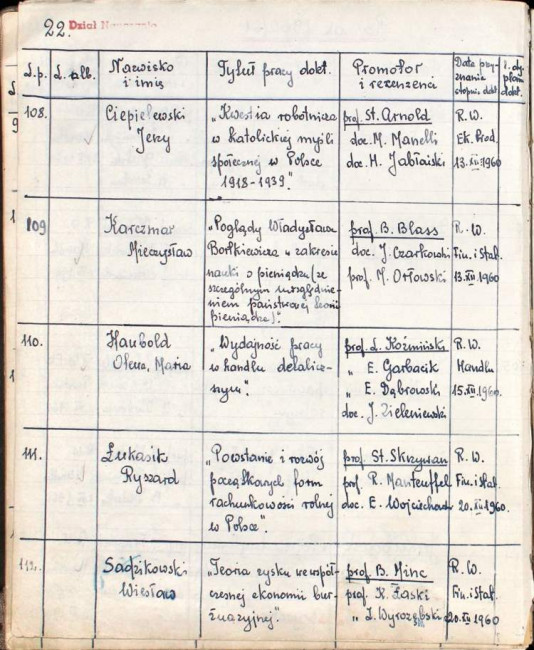 22. Dział Nauczania
L.p. L. alb. Nazwisko i imię Tytuł pracy dokt. Promotor i recenzenci Data przyznania stopnia dokt. dyplom dokt.
108. Ciepielewski Jerzy
„Kwestia robotnicza
w katolickiej myśli
społecznej w Polsce
1918-1939".
prof. St. Arnold
doc. M. Manelli
doc. H. Jabłoński
R. W.
Ek. Prod.
13.XII.1960
109 Karczmar
Mieczysław
„Poglądy Władysława
Bortkiewicza w zakresie
nauki o pieniądzu (ze
szczególnym uwzględnie-
niem państwowej teorii
pieniądza)".
prof. B. Blass
doc. J. Czarkowski
prof. M. Orłowski
R. W.
Fin. i Stat.
13.XII.1960
110. Haubold
Olena, Maria
„Wydajność pracy
w handlu detalicz-
nym".
prof. L. Koźmiński
„ E. Garbacik
„ E. Dąbrowski
doc. J. Zieleniewski
R. W.
Handlu
15.XII.1960.
111. Łukasik
Ryszard
„Powstanie i rozwój
początkowych form
rachunkowości rolnej
w Polsce".
prof. St. Skrzywan
prof. R. Manteuffel
doc. E. Wojciechow
R. W.
Fin. i Stat.
20.XII.1960.
112. Sadzikowski
Wiesław
„Teoria zysku we współ-
czesnej ekonomii bur-
żuazyjnej".
prof. B. Minc
prof. K. Łaski
„ J. Wyrozębski
R. W.
Fin. i Stat.
20.XII.1960